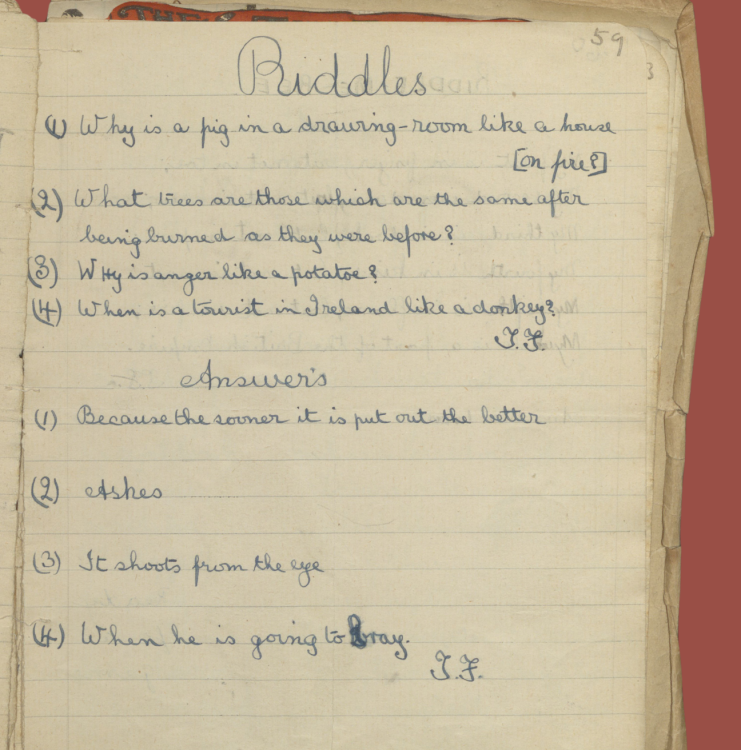 59
3
Riddles
(1) Why is a pig in a drawing-room like a house
[on fire?]
(2) What trees are those which are the same after
being burned as they were before?
(3) WHy is anger like a potatoe?
(4) When is a tourist in Ireland like a donkey?
J.F.
Answer's
(1) Because the sooner it is put out the better
(2) Ashes
(3) It shoots from the eye
(4) When he is going to bray.
J.F.